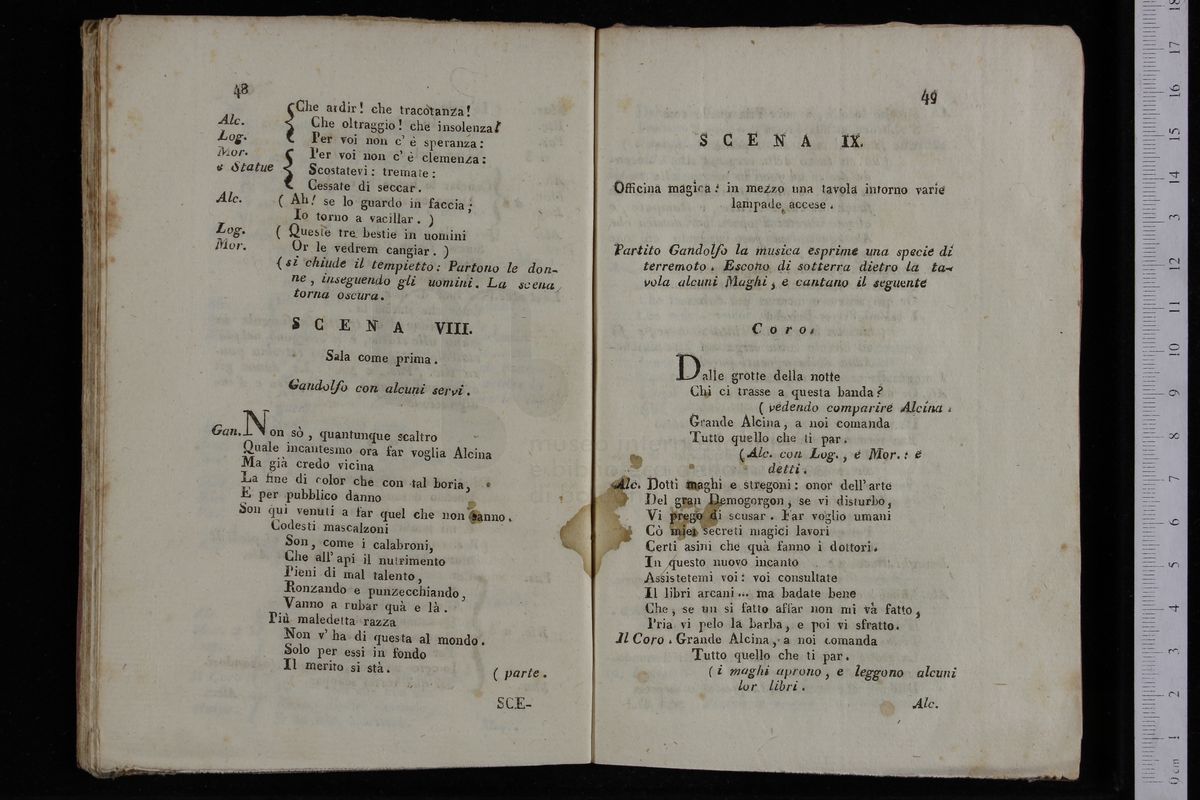 48
Che ardir! che tracotanza!
Alc. Che oltraggio! che insolenza!
Log. Per voi non c' è speranza:
Mor. Per voi non c' è clemenza:
e Statue Scostatevi: tremate:
Cessate di seccar.
Alc. ( Ah! se lo guardo in faccia;
Io torno a vacillar. )
Log. ( Queste tre bestie in uomini
Mor. Or le vedrem cangiar. )
( si chiude il tempietto: Partono le don-
ne, inseguendo gli uomini. La scena
torna oscura.
SCENA VIII.
Sala come prima.
Gandolfo con alcuni servi.
Gan. Non sò, quantunque scaltro
Quale incantesmo ora far voglia Alcina
Ma già credo vicina
La fine di color che con tal boria,
E per pubblico danno
Son qui venuti a far quel che non sanno.
Codesti mascalzoni
Son, come i calabroni,
Che all' api il nutrimento
Pieni di mal talento,
Ronzando e punzecchiando,
Vanno a rubar quà e là.
Più maledetta razza
Non v' ha di questa al mondo.
Solo per essi in fondo
Il merito si stà. ( parte.
SCE-
49
SCENA IX.
Officina magica: in mezzo una tavola intorno varie
lampade accese.
Partito Gandolfo la musica esprime una specie di
terremoto. Escono di sotterra dietro la ta-
vola alcuni Maghi, e cantano il seguente
Coro.
Dalle grotte della notte
Chi ci trasse a questa banda?
( vedendo comparire Alcina.
Grande Alcina, a noi comanda
Tutto quello che ti par.
( Alc. con Log., e Mor.: e
detti.
Alc. Dotti maghi e stregoni: onor dell' arte
Del gran Demogorgon, se vi disturbo,
Vi prego di scusar. Far voglio umani
Cò miei secreti magici lavori
Certi asini che quà fanno i dottori.
In questo nuovo incanto
Assistetemi voi: voi consultate
Il libri arcani... ma badate bene
Che, se un si fatto affar non mi và fatto,
Pria vi pelo la barba, e poi vi sfratto.
Il Coro. Grande Alcina, a noi comanda
Tutto quello che ti par.
( i maghi aprono, e leggono alcuni
lor libri.
Alc.